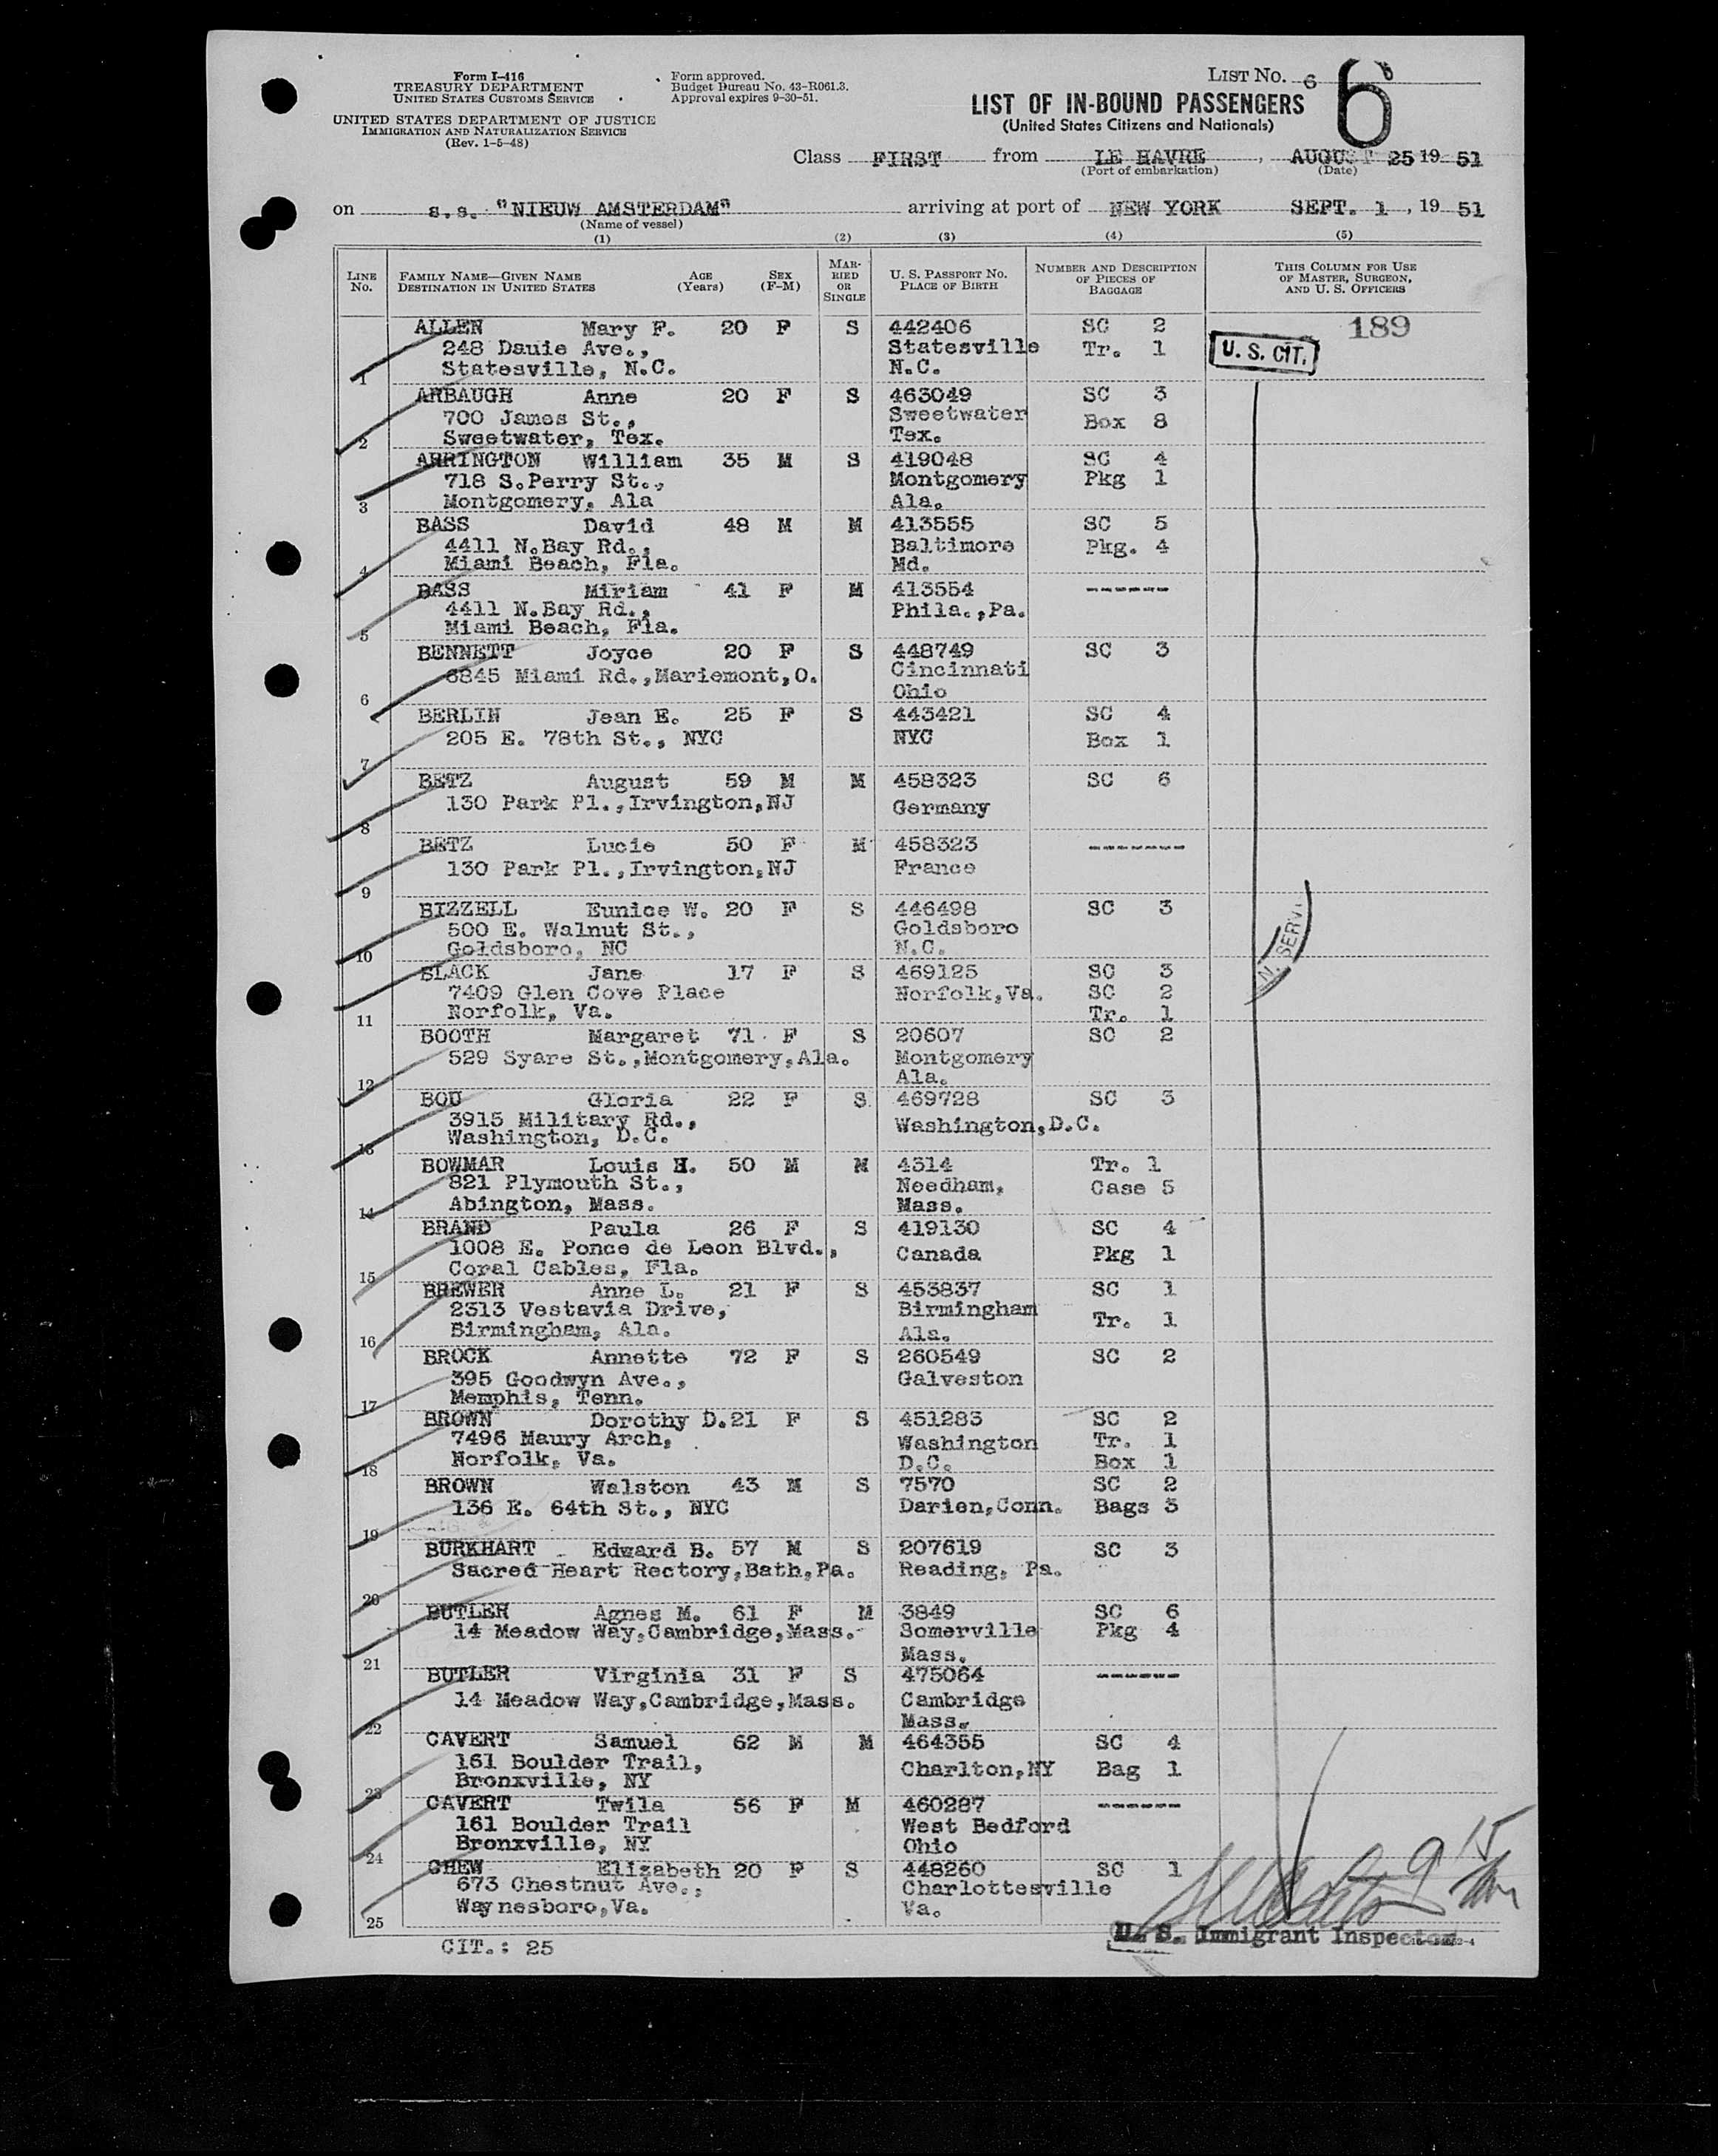 Form I-416
TREASURY DEPARTMENT
UNITED STATES CUSTOMS SERVICE
UNITED STATES DEPARTMENT OF JUSTICE
IMMIGRATION AND NATURALIZATION SERVICE
(Rev. 1-5-48)
Form approved.
Budget Bureau No. 43-R061.3.
Approval expires 9-30-51.
LIST No. 6
6
LIST OF IN-BOUND PASSENGERS
(United States Citizens and Nationals)
Class FIRST from LE HAVRE, AUGUST 25 19 51
(Port of embarkation) (Date)
on s.s. "NIEUW AMSTERDAM" arriving at port of NEW YORK SEPT. 1, 19 51
(Name of vessel)
(1) (2) (3) (4) (5)
LINE No. FAMILY NAME—GIVEN NAME DESTINATION IN UNITED STATES AGE (Years) SEX (F-M) MARRIED OR SINGLE U. S. PASSPORT NO. PLACE OF BIRTH NUMBER AND DESCRIPTION OF PIECES OF BAGGAGE THIS COLUMN FOR USE OF MASTER, SURGEON, AND U. S. OFFICERS
ALLEN Mary F. 20 F S 442406 SC 2 189
248 Dauie Ave., Statesville Tr. 1 U. S. CIT.
1 Statesville, N.C. N.C.
ARBAUGH Anne 20 F S 463049 SC 3
700 James St., Sweetwater Box 8
2 Sweetwater, Tex. Tex.
ARRINGTON William 35 M S 419048 SC 4
718 S.Perry St., Montgomery Pkg 1
3 Montgomery, Ala Ala.
BASS David 48 M M 413555 SC 5
4411 N.Bay Rd., Baltimore Pkg. 4
4 Miami Beach, Fla. Md.
BASS Miriam 41 F M 413554 ------
4411 N.Bay Rd., Phila.,Pa.
5 Miami Beach, Fla.
BENNETT Joyce 20 F S 448749 SC 3
6845 Miami Rd.,Mariemont,O. Cincinnati
6 Ohio
BERLIN Jean E. 25 F S 443421 SC 4
205 E. 78th St., NYC NYC Box 1
7
BETZ August 59 M M 458323 SC 6
130 Park Pl.,Irvington,NJ Germany
8
BETZ Lucie 50 F M 458323 ------
130 Park Pl.,Irvington,NJ France
9
BIZZELL Eunice W. 20 F S 446498 SC 3
500 E. Walnut St., Goldsboro
10 Goldsboro, NC N.C.
N. SERV
SLACK Jane 17 F S 469125 SC 3
7409 Glen Cove Place Norfolk,Va. SC 2
11 Norfolk, Va. Tr. 1
BOOTH Margaret 71 F S 20607 SC 2
529 Syare St.,Montgomery,Ala. Montgomery
12 Ala.
BOU Gloria 22 F S 469728 SC 3
3915 Military Rd., Washington,D.C.
13 Washington, D.C.
BOWMAR Louis H. 50 M M 4314 Tr. 1
821 Plymouth St., Needham, Case 5
14 Abington, Mass. Mass.
BRAND Paula 26 F S 419130 SC 4
1008 E. Ponce de Leon Blvd., Canada Pkg 1
15 Coral Cables, Fla.
BREWER Anne L. 21 F S 453837 SC 1
2313 Vestavia Drive, Birmingham Tr. 1
16 Birmingham, Ala. Ala.
BROCK Annette 72 F S 260549 SC 2
395 Goodwyn Ave., Galveston
17 Memphis, Tenn.
BROWN Dorothy D. 21 F S 451283 SC 2
7496 Maury Arch, Washington Tr. 1
18 Norfolk, Va. D.C. Box 1
BROWN Walston 43 M S 7570 SC 2
136 E. 64th St., NYC Darien,Conn. Bags 3
19
BURKHART Edward B. 57 M S 207619 SC 3
Sacred Heart Rectory,Bath,Pa. Reading, Pa.
20
BUTLER Agnes M. 61 F M 3849 SC 6
14 Meadow Way,Cambridge,Mass. Somerville Pkg 4
21 Mass.
BUTLER Virginia 31 F S 475064 ------
14 Meadow Way,Cambridge,Mass. Cambridge
22 Mass.
CAVERT Samuel 62 M M 464355 SC 4
161 Boulder Trail, Charlton,NY Bag 1
23 Bronxville, NY
CAVERT Twila 56 F M 460287 ------
161 Boulder Trail West Bedford
24 Bronxville, NY Ohio
CHEW Elizabeth 20 F S 448260 SC 1
673 Chestnut Ave., Charlottesville
25 Waynesboro,Va. Va.
CIT.: 25
U. S. Immigrant Inspector